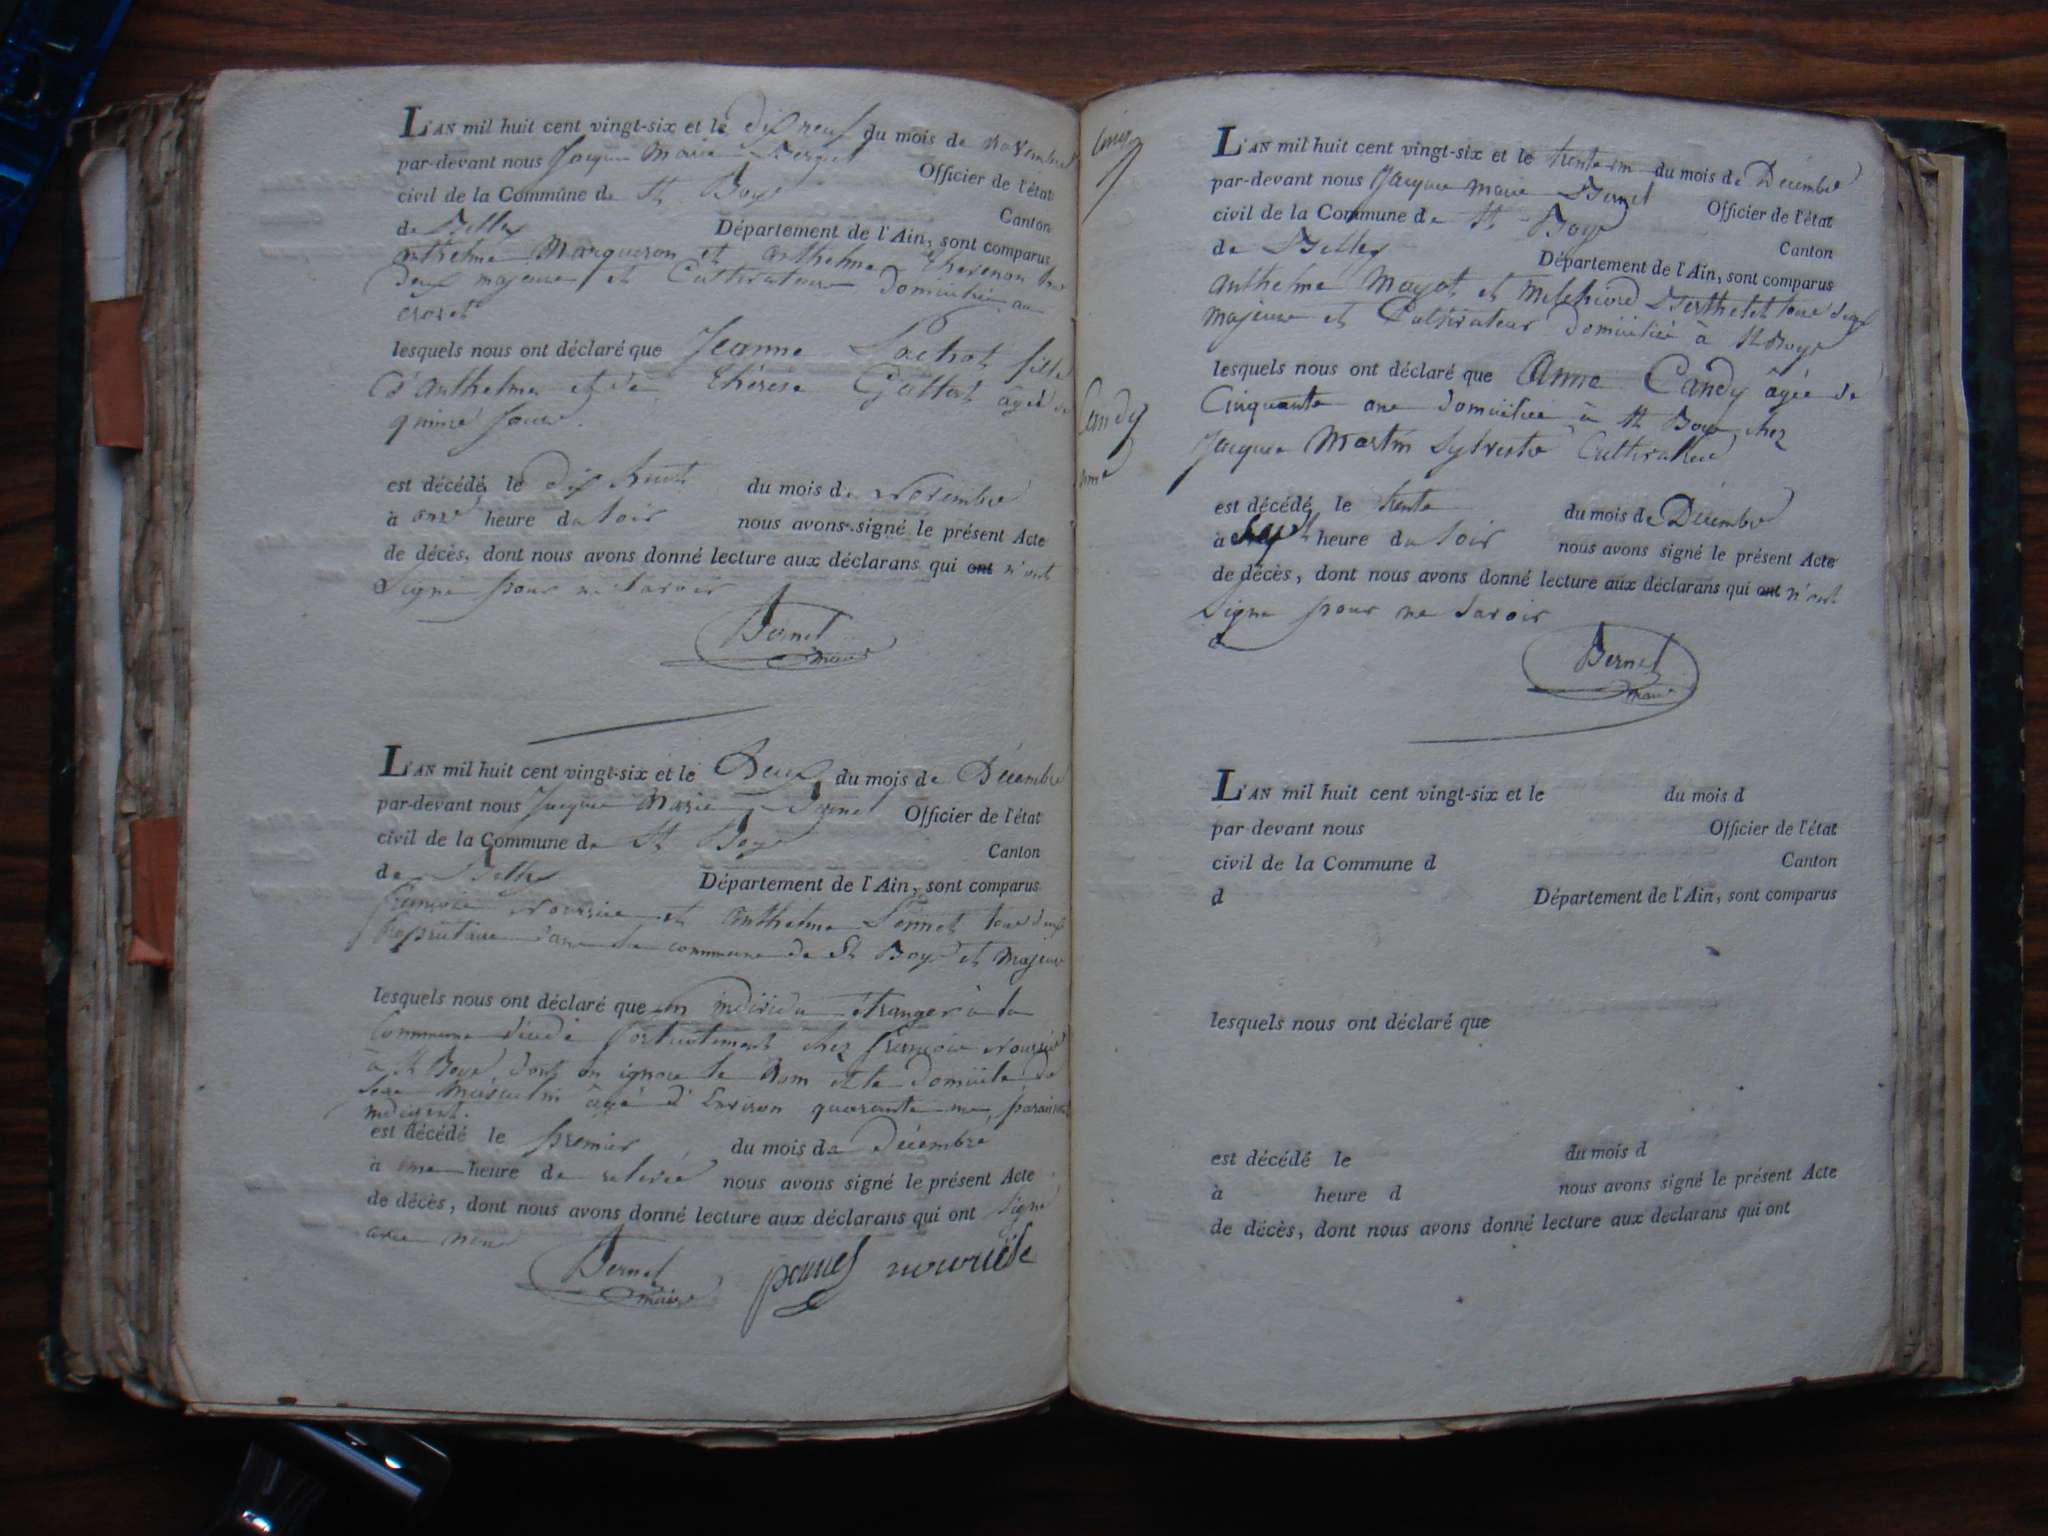 L'AN mil huit cent vingt-six et le dix neuf du mois de novembre
par-devant nous Jacque Marie Bernet Officier de l'état
civil de la Commune de St Boys Canton
de Belley Département de l'Ain, sont comparus
anthelme Marqueron et anthelme thevenon tous
deux majeurs et Cultivateurs domiciliés au
crozet
lesquels nous ont déclaré que Jeanne Lachat fille
d'anthelme et de thérèse Gallert âgée de
quinze jours.
est décédé le dix huit du mois de Novembre
à onze heure du soir nous avons signé le présent Acte
de décès, dont nous avons donné lecture aux déclarans qui ont n'ont
signé pour ne savoir
Bernet
maire
L'AN mil huit cent vingt-six et le Deux du mois de Décembre
par-devant nous Jacque Marie Bernet Officier de l'état
civil de la Commune de St Boys Canton
de Belley Département de l'Ain, sont comparus
françois Nourrice et anthelme Ponnet tous deux
Propriétaire dans la commune de St Boys et majeurs
lesquels nous ont déclaré que un individu étranger à la
Commune décédé fortuitement chez françois Nourrice
à St Boys, dont on ignore le Nom et le domicile de
sexe Masculin âgé d'environ quarante ans, paraissant
indigent.
est décédé le premier du mois de décembre
à une heure de relevée nous avons signé le présent Acte
de décès, dont nous avons donné lecture aux déclarans qui ont signé
avec nous
Bernet
maire
ponnet nourrice
L'AN mil huit cent vingt-six et le trente-un du mois de Décembre
par-devant nous Jacque marie Bernet Officier de l'état
civil de la Commune de St Boys Canton
de Belley Département de l'Ain, sont comparus
anthelme Mayot et Melchiord Berthelet tous deux
majeurs et Cultivateur domiciliés à St Boys
Candy
lesquels nous ont déclaré que Anne Candy âgée de
Cinquante ans domiciliée à St Boys chez
Jacques Martin Sylvestre Cultivateur
est décédé le trente du mois de Décembre
à sept heure du soir nous avons signé le présent Acte
de décès, dont nous avons donné lecture aux déclarans qui ont n'ont
signé pour ne savoir
Bernet
maire
L'AN mil huit cent vingt-six et le du mois d
par devant nous Officier de l'état
civil de la Commune d Canton
d Département de l'Ain, sont comparus
lesquels nous ont déclaré que
est décédé le du mois d
à heure d nous avons signé le présent Acte
de décès, dont nous avons donné lecture aux déclarans qui ont